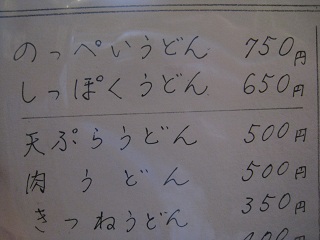 のっぺいうどん 750円
しっぽくうどん 650円
天ぷらうどん 500円
肉うどん 500円
きつねうどん 350円